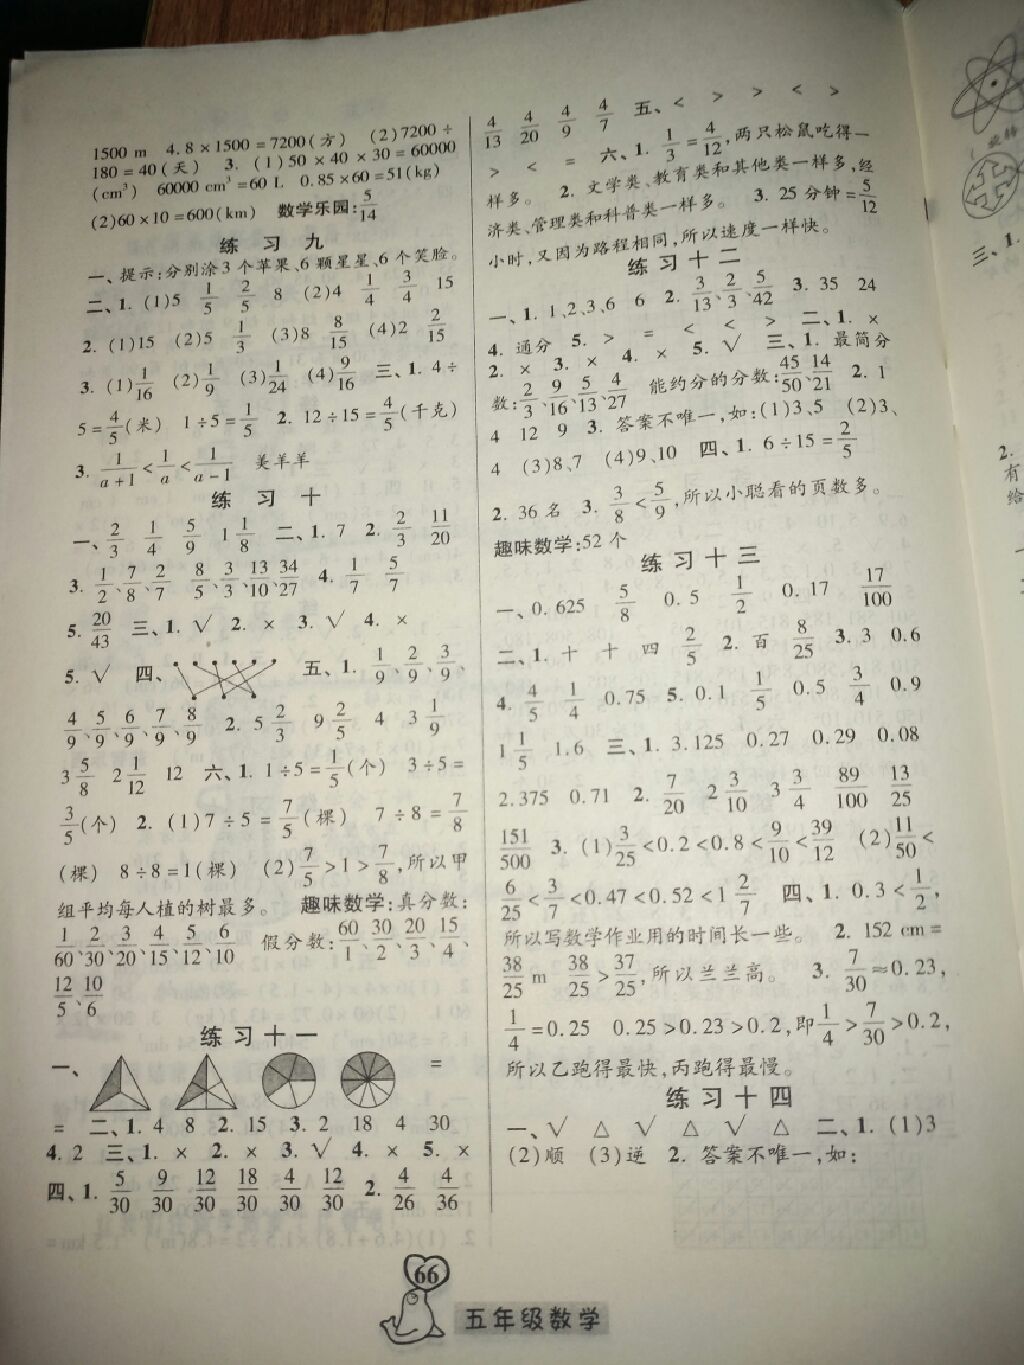 1500 m 4.8×1500=7200(方) (2)7200÷
180=40(天) 3. (1)50×40×30=60000
(cm³) 60000 cm³=60 L 0.85×60=51(kg)
(2)60×10=600(km) 数学乐园:5/14
练习九
一、提示:分别涂3个苹果、6颗星星、6个笑脸。
二、1. (1)5 1/5 2/5 8 (2)4 1/4 3/4 15
2. (1)15 (2)5 1/3 (3)8 8/15 (4)2 2/15
3. (1)1/16 (2)1/9 (3)1/24 (4)9/16 三、1. 4÷
5=4/5(米) 1÷5=1/5 2. 12÷15=4/5(千克)
3. 1/(a+1)<1/a<1/(a-1) 美羊羊
练习十
一、2/3 1/4 5/9 1 1/8 二、1. 7 2. 2/3 11/20
3. 1/2、7/8、2/7 8/5、3/3、13/10、34/27 4. 1/7 5/7
5. 20/43 三、1. √ 2. × 3. √ 4. ×
5. √ 四、 五、1. 1/9、2/9、3/9、
4/9、5/9、6/9、7/9、8/9 2. 5 2/3 9 2/5 4 3 1/9
3 5/8 2 1/12 12 六、1. 1÷5=1/5(个) 3÷5=
3/5(个) 2. (1)7÷5=7/5(棵) 7÷8=7/8
(棵) 8÷8=1(棵) (2)7/5>1>7/8,所以甲
组平均每人植的树最多。 趣味数学:真分数:
1/60、2/30、3/20、4/15、5/12、6/10 假分数:60/1、30/2、20/3、15/4、
12/5、10/6
练习十一
一、 =
= 二、1. 4 8 2. 15 3. 2 18 4 30
4. 2 三、1. × 2. × 3. √ 4. × 5. ×
四、1. 5/30 9/30 12/30 18/30 4/30 12/30 2. 4/26 4/36
4/13 4/20 4/9 4/7 五、< > > < >
> < = 六、1. 1/3=4/12,两只松鼠吃得一
样多。 2. 文学类、教育类和其他类一样多,经
济类、管理类和科普类一样多。 3. 25分钟=5/12
小时,又因为路程相同,所以速度一样快。
练习十二
一、1. 1、2、3、6 6 2. 3/13、2/3、5/42 3. 35 24
4. 通分 5. > = < < > 二、1. ×
2. × 3. × 4. × 5. √ 三、1. 最简分
数:2/3、9/16、5/13、4/27 能约分的分数:45/50、14/21 2. 1
4 12 9 3. 答案不唯一,如:(1)3、5 (2)3、
4 (3)8、7 (4)9、10 四、1. 6÷15=2/5
2. 36名 3. 3/8<5/9,所以小聪看的页数多。
趣味数学:52个
练习十三
一、0.625 5/8 0.5 1/2 0.17 17/100
二、1. 十 十 四 2/5 2. 百 8/25 3. 3 0.6
4. 4/5 1/4 0.75 5. 0.1 1/5 0.5 3/4 0.9
1 1/5 1.6 三、1. 3.125 0.27 0.29 0.08
2.375 0.71 2. 7/20 2 3/10 3 3/4 89/100 13/25
151/500 3. (1)3/25<0.2<0.8<9/10<39/12 (2)11/50<
6/25<3/7<0.47<0.52<1 2/7 四、1. 0.3<1/2,
所以写数学作业用的时间长一些。 2. 152 cm=
38/25 m 38/25>37/25,所以兰兰高。 3. 7/30≈0.23,
1/4=0.25 0.25>0.23>0.2,即1/4>7/30>0.2,
所以乙跑得最快,丙跑得最慢。
练习十四
一、√ △ √ △ √ △ 二、1. (1)3
(2)顺 (3)逆 2. 答案不唯一,如:
66
五年级数学
三、1.
2.
有
给